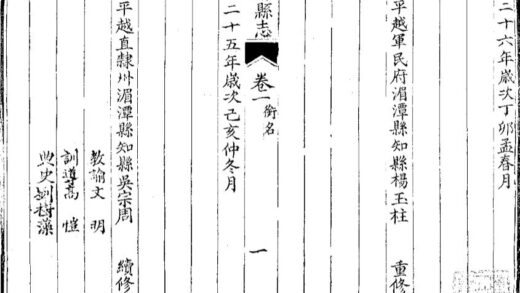 二十六年歲次丁卯孟春月
平越軍民府湄潭縣知縣楊玉柱 重修
縣志 卷一 銜名 一
二十五年歲次己亥仲冬月
平越直隸州湄潭縣知縣吳宗周 續修
教諭文 明
訓導蒿 愷
典史劉樹藻